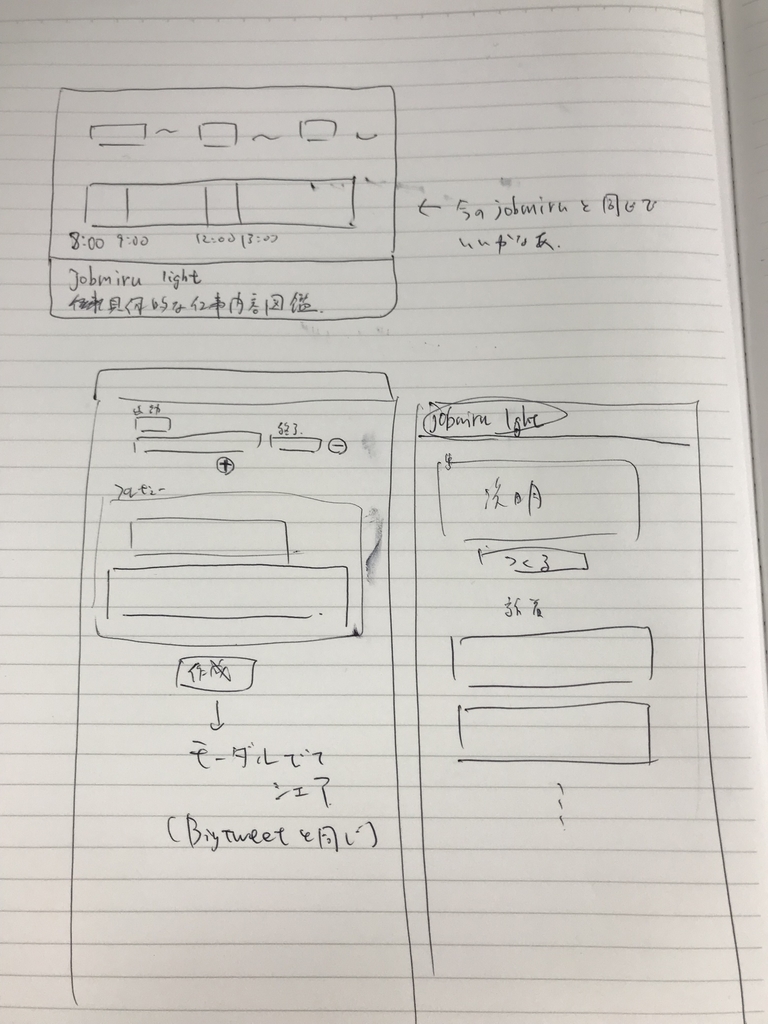 8:00 9:00 12:00 13:00
Jobmiru light
具体的な仕事内容図鑑.
← 今の jobmiru と同じで
いいかなあ.
終了
作成
↓
モーダルでて
シェア
(Bigtweet と同じ)
jobmiru light
説明
つくる
新着